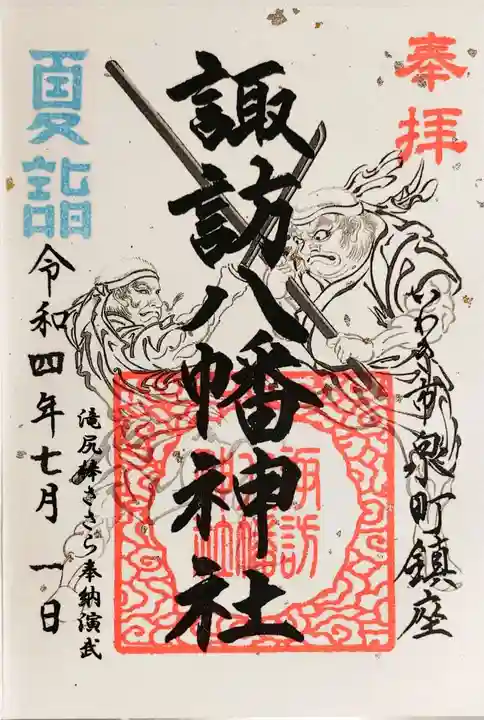 奉拝
いわき市泉町鎮座
諏訪八幡神社
諏訪八幡神社
夏詣
令和四年七月一日
滝尻棒ささら奉納演武